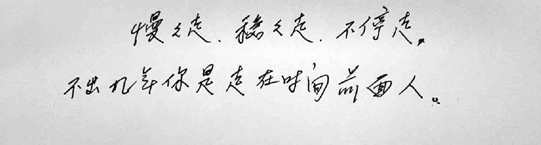 慢々走、稳々走、不停走。
不出几年你是走在时间前面人。